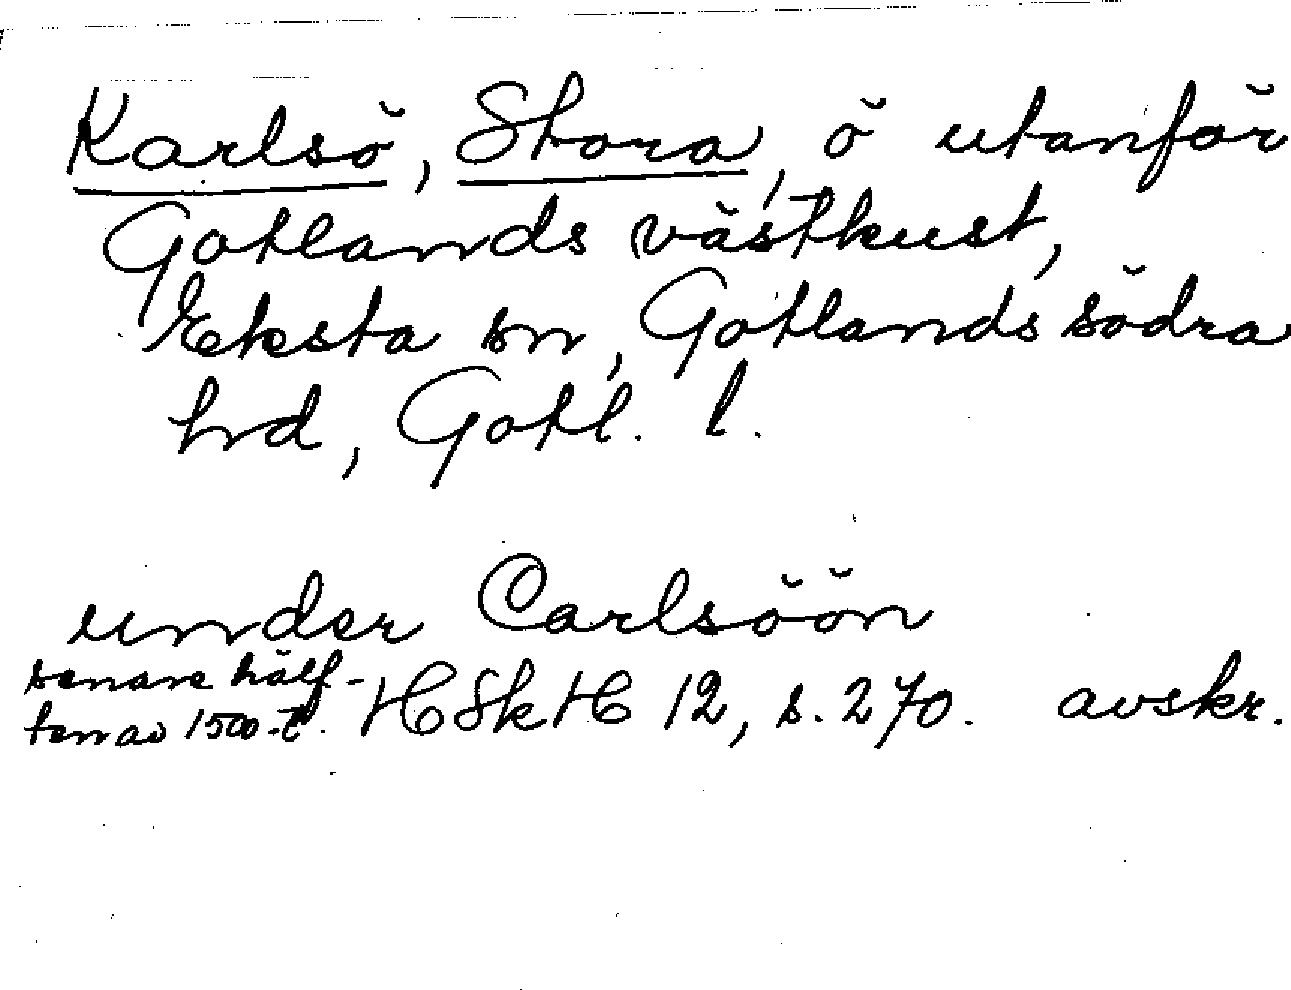 Karlsö, Stora, ö utanför
Gotlands västkust,
Eksta sn, Gotlands södra
hrd, Gotl. l.
under Carlsöön
senare hälf-
ten av 1500-t. HSkH 12, s. 270. avskr.